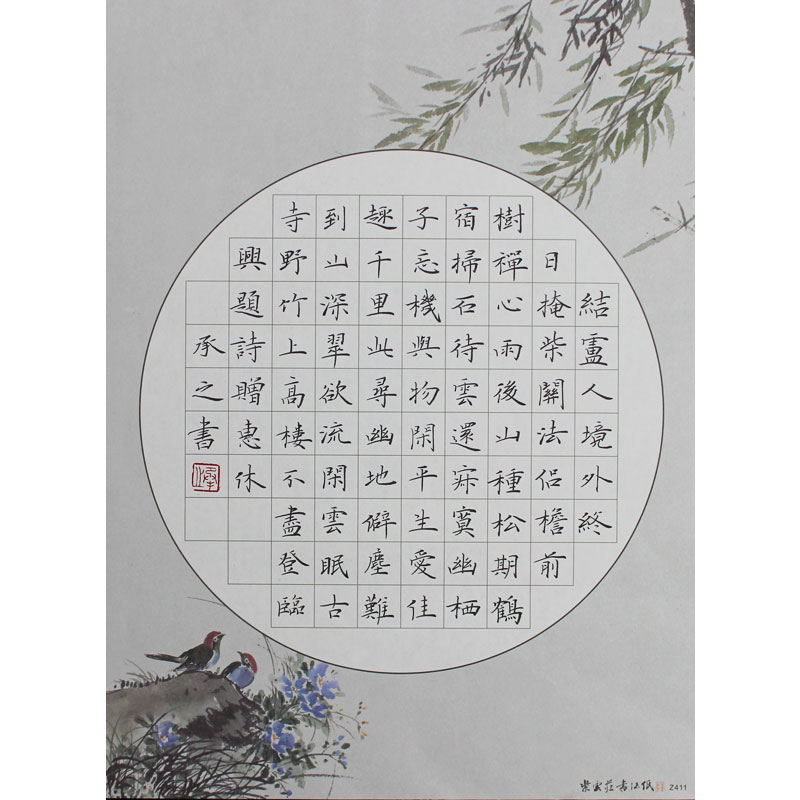 結盧人境外終
日掩柴關法侶檐前
樹禪心雨後山種松期鶴
宿掃石待雲還寂寞幽栖
子忘機與物閑平生愛佳
趣千里此尋幽地僻塵難
到山深翠欲流閑雲眠古
寺野竹上高樓不盡登臨
興題詩贈惠休
承之書
紫雲莊書法紙 Z411